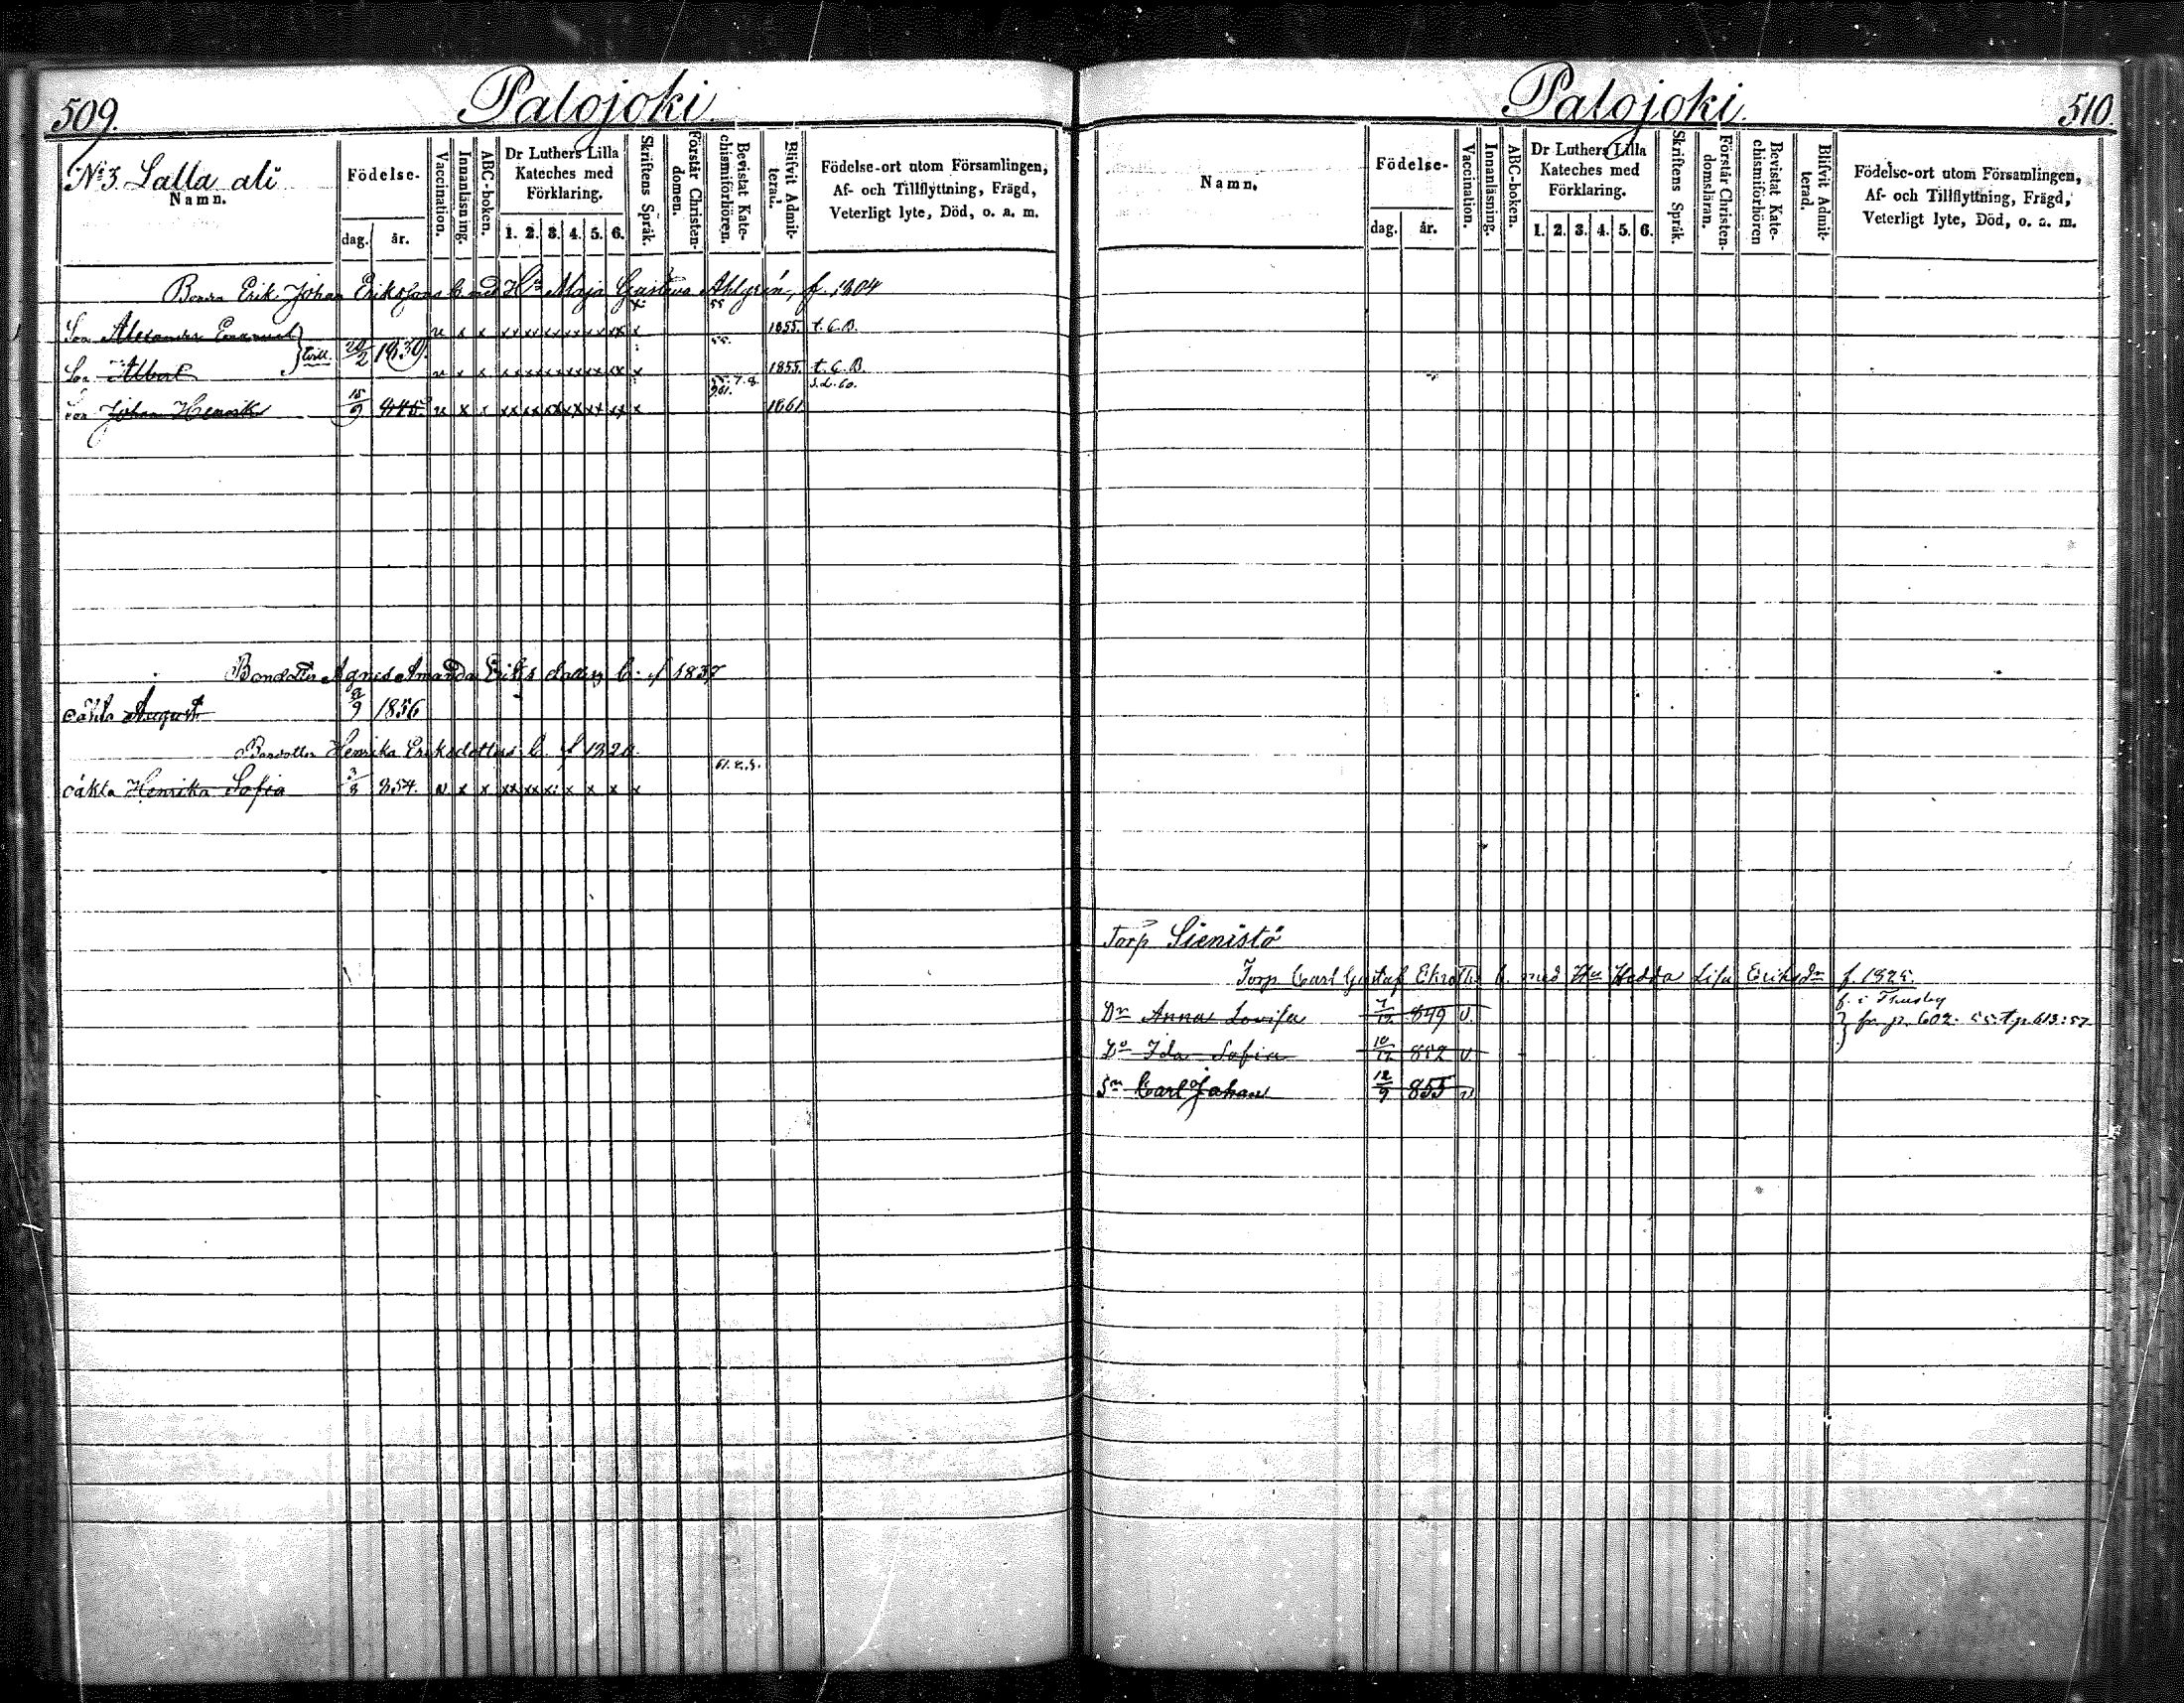 509.
Palojoki.
No 3. Lalla ali
Namn.
Födelse-
dag.
år.
Vaccination.
Innanläsning.
ABC-boken.
Dr Luthers Lilla
Kateches med
Förklaring.
1. 2. 3. 4. 5. 6.
Skriftens Språk.
Förstår Christen-
domen.
Bevistat Kate-
chismiförhören.
Blifvit Admit-
terad.
Födelse-ort utom Församlingen,
Af- och Tillflyttning, Frägd,
Veterligt lyte, Död, o. a. m.
Bonden Erik Johan Erikssons b. med Hu Maja Gustava Ahlgrén, f. 1804
55
Son Alexander Emanuel v x x xx xx xx xx xx xx x 1855. t. C. B.
tvill. 20/2 1839.
55.
Son Albert v x x xx xx xx xx xx xx x 1855. t. C. B.
55. 7. 8.
861.
Son Johan Henrik 15/9 845 v x x xx xx xx xx xx xx x 1861
Bondotter Agnes Amanda Eriksdotters b. f 1837
oäkta August 2/9 1856
Bondotter Henrika Eriksdotters b. f 1820.
oäkta Henrika Sofia 3/8 854. v x x xx xx x: x x x x
Palojoki.
510.
Namn.
Födelse-
dag.
år.
Vaccination.
Innanläsning.
ABC-boken.
Dr Luthers Lilla
Kateches med
Förklaring.
1. 2. 3. 4. 5. 6.
Skriftens Språk.
Förstår Christen-
domsläran.
Bevistat Kate-
chismiförhören
Blifvit Admit-
terad.
Födelse-ort utom Församlingen,
Af- och Tillflyttning, Frägd,
Veterligt lyte, Död, o. a. m.
Torp Sienistö
Torp. Carl Gustaf Ekroths b. med Hu Hedda Lisa Eriksdr f. 1825.
f. i Thusby
Dr Anna Lovisa 7/12 849 v. fr p. 602. 55. t. p. 613: 57
Do Ida Sofia 10/12 852 v
Sn Carl Johan 12/9 855 v